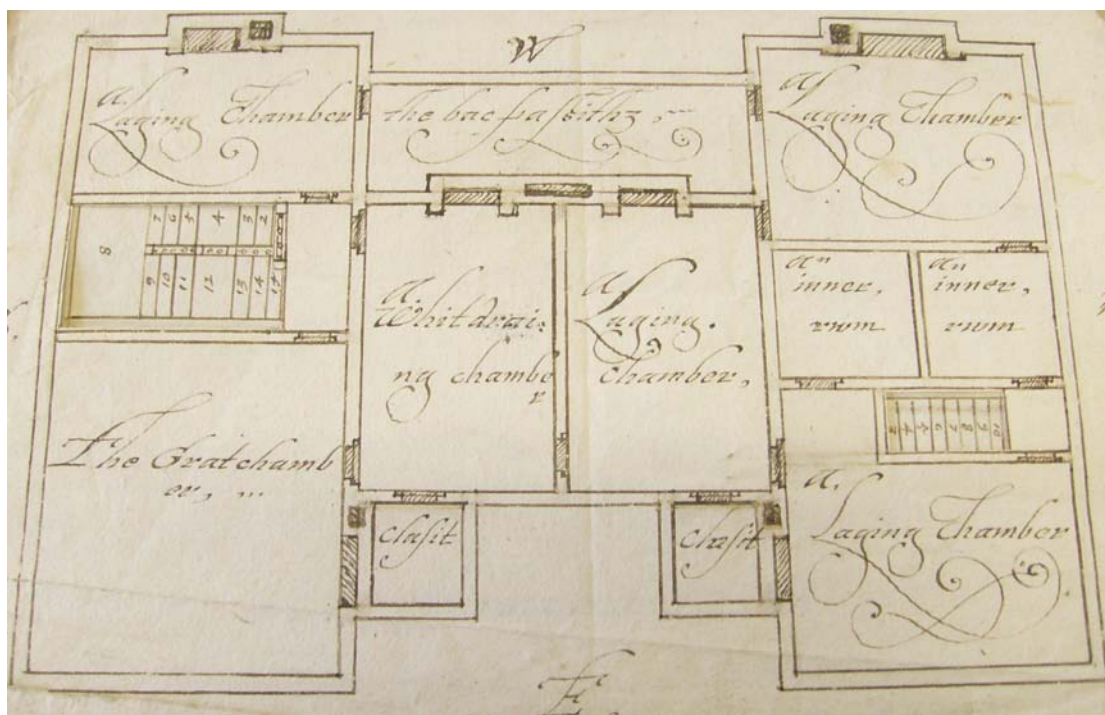 W
a.
Laging Chamber
the bacpasēithz,
a
Laging Chamber
7 6 5 4 3 2
8
9 10 11 12 13 14 15
a.
Whitdrai:
ng chambe
r
a
Laging.
Chamber,
an
inner,
rwm
an
inner,
rwm
The Gratchamb
er, ...
clasit
clasit
a.
Laging Chamber